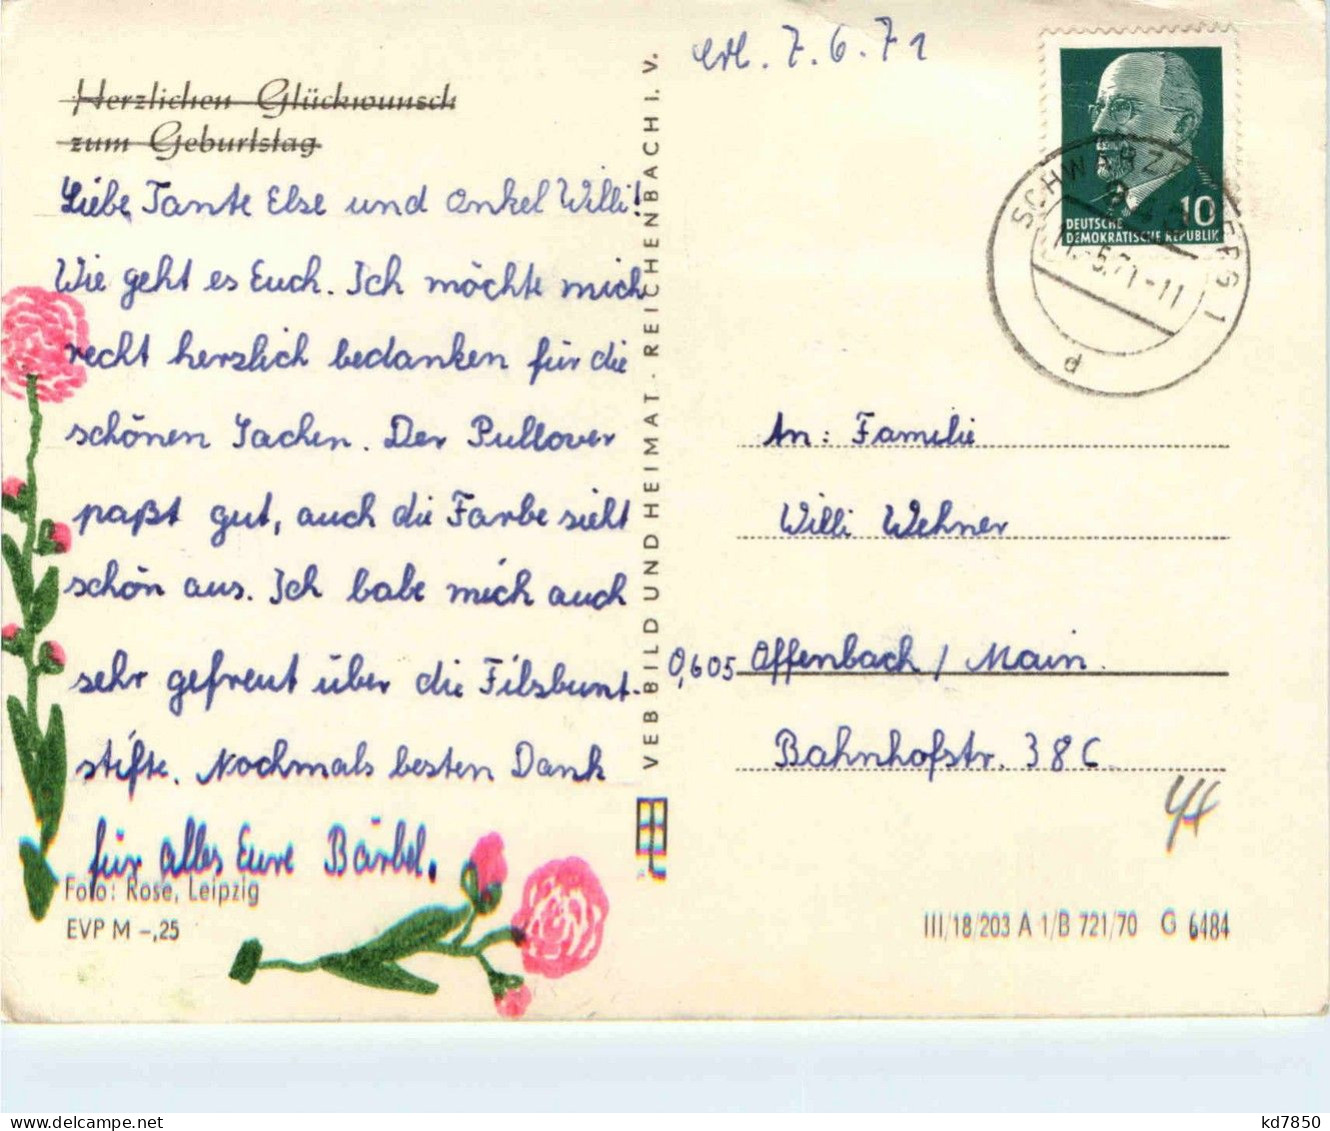 erl. 7.6.71
Herzlichen Glückwunsch
zum Geburtstag
Liebe Tante Else und Onkel Willi!
Wie geht es Euch. Ich möchte mich
recht herzlich bedanken für die
schönen Sachen. Der Pullover
paßt gut, auch die Farbe sieht
schön aus. Ich habe mich auch
sehr gefreut über die Filzbunt-
stifte. Nochmals besten Dank
für alles Eure Bärbel.
Foto: Rose, Leipzig
EVP M –,25
VEB BILD UND HEIMAT · REICHENBACH I. V.
10
DEUTSCHE
DEMOKRATISCHE REPUBLIK
An: Familie
Willi Wehner
0,605 Offenbach / Main.
Bahnhofstr. 38C
III/18/203 A 1/B 721/70 G 6484
kd7850
delcampe.net